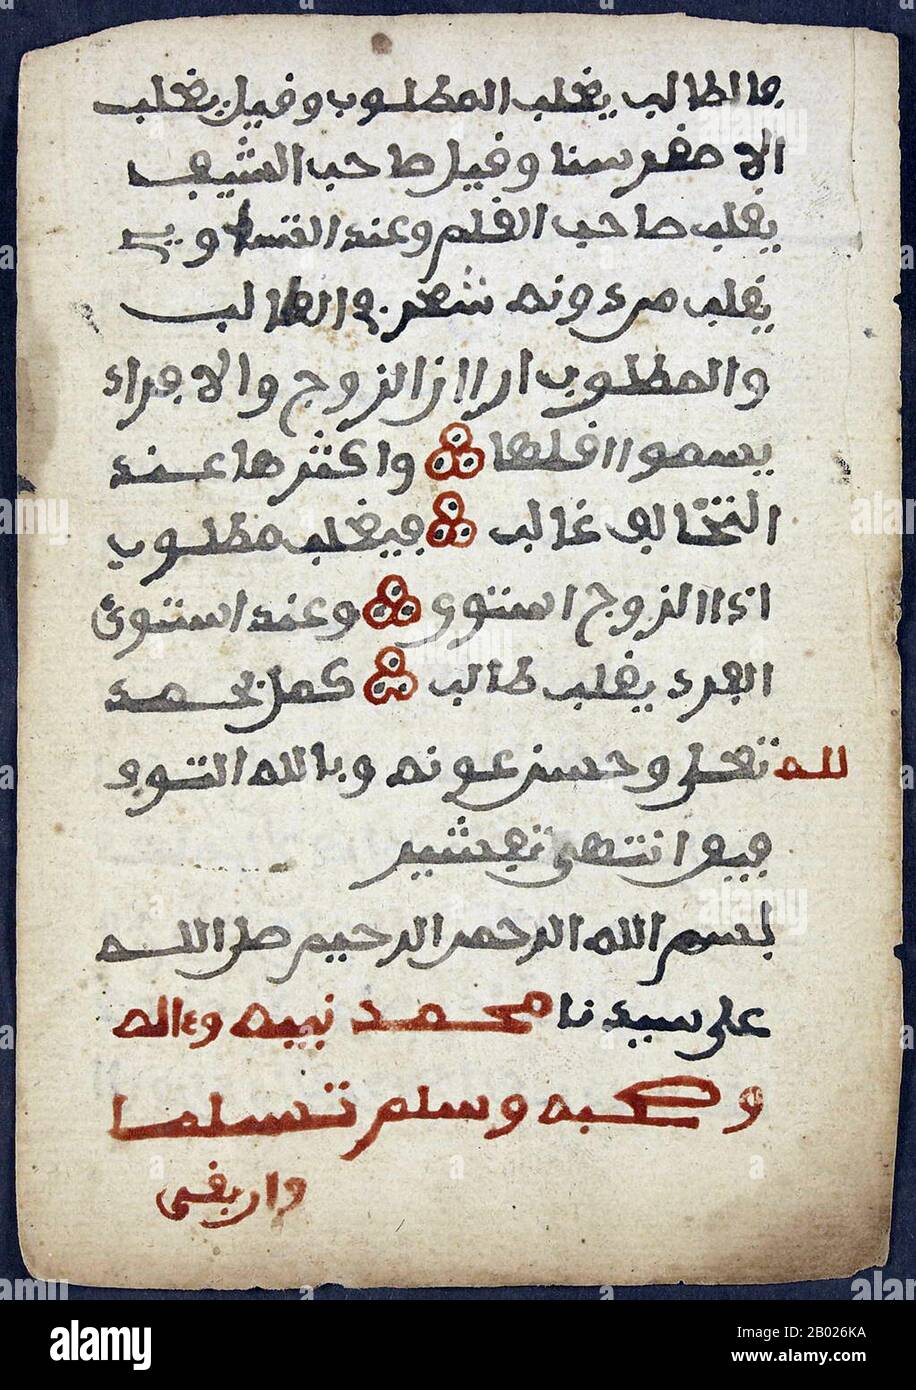 فالطالب يغلب المطلوب وفيل يغلب
الاصغر سنا وفيل صاحب السيف
يغلب صاحب الفلم وعند التساوي
يغلب من دونه شعر والطالب
والمطلوب الزوج والافراد
يسموا افلها واكثرها عند
التخالف غالب فيغلب مطلوب
اذا الزوج استوى وعند استوى
الفرد يغلب طالب كمل بحمد
لله تعلى وحسن عونه وبالله التو
انتهى
بسم الله الرحمن الرحيم صلى الله
على سيدنا محمد نبيه وءاله
وصحبه وسلم تسلما
alamy
a
www.alamy.com
Image ID: 2B026KA